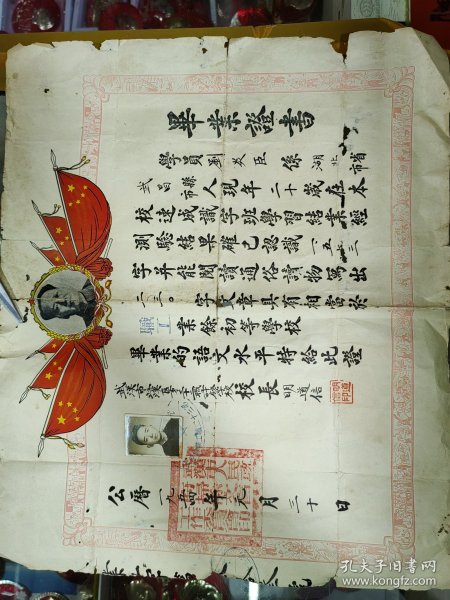 畢業證書
學員劉炎臣係湖北省市
武昌縣市人現年二十歲在本
校速成識字班學習結業經
測驗結果確已認識一五一三
字并能閱讀通俗讀物寫出
二二〇字文章具有相當於
職工業餘初等學校
畢業的語文水平特給此證
校長明道信
公曆一九五四年元月三十日
孔夫子旧书网
www.kongfz.com